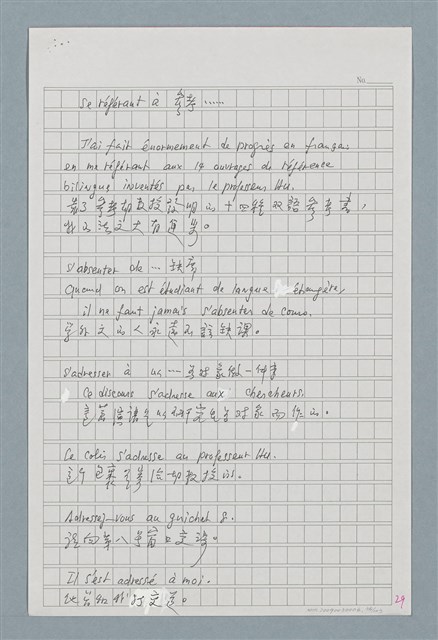 No.
se référant à 參考……
J'ai fait énormement de progrès en français
en me référant aux 14 ouvrages de référence
bilingue inventés par le professeur Hu.
靠了參考胡教授發明的十四種双語參考書,
我的法文大有進步。
s'absenter de … 缺席
Quand on est étudiant de langue étrangère,
il ne faut jamais s'absenter de cours.
學外文的人永遠不該缺課。
s'adresser à 以…為對象做一件事
Ce discours s'adresse aux chercheurs.
這篇演講是以研究生為對象而作的。
Ce colis s'adresse au professeur Hu.
這個包裹是寄給胡教授的。
Adressez-vous au guichet 8.
請向第八號窗口交涉。
Il s'est adressé à moi.
他曾和我打交道。
29